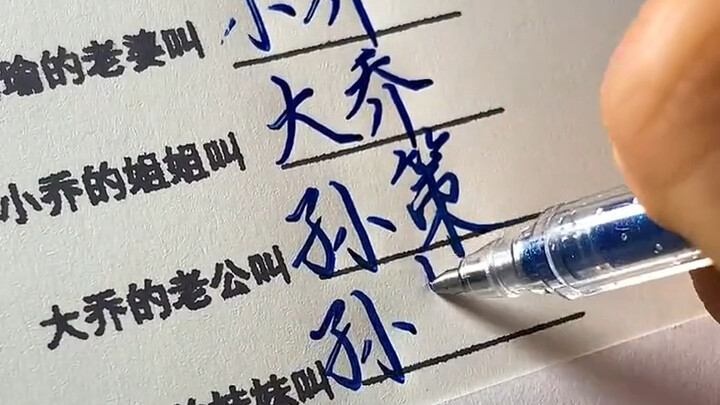 瑜的老婆叫 小乔
小乔的姐姐叫 大乔
大乔的老公叫 孙策
妹妹叫 孙